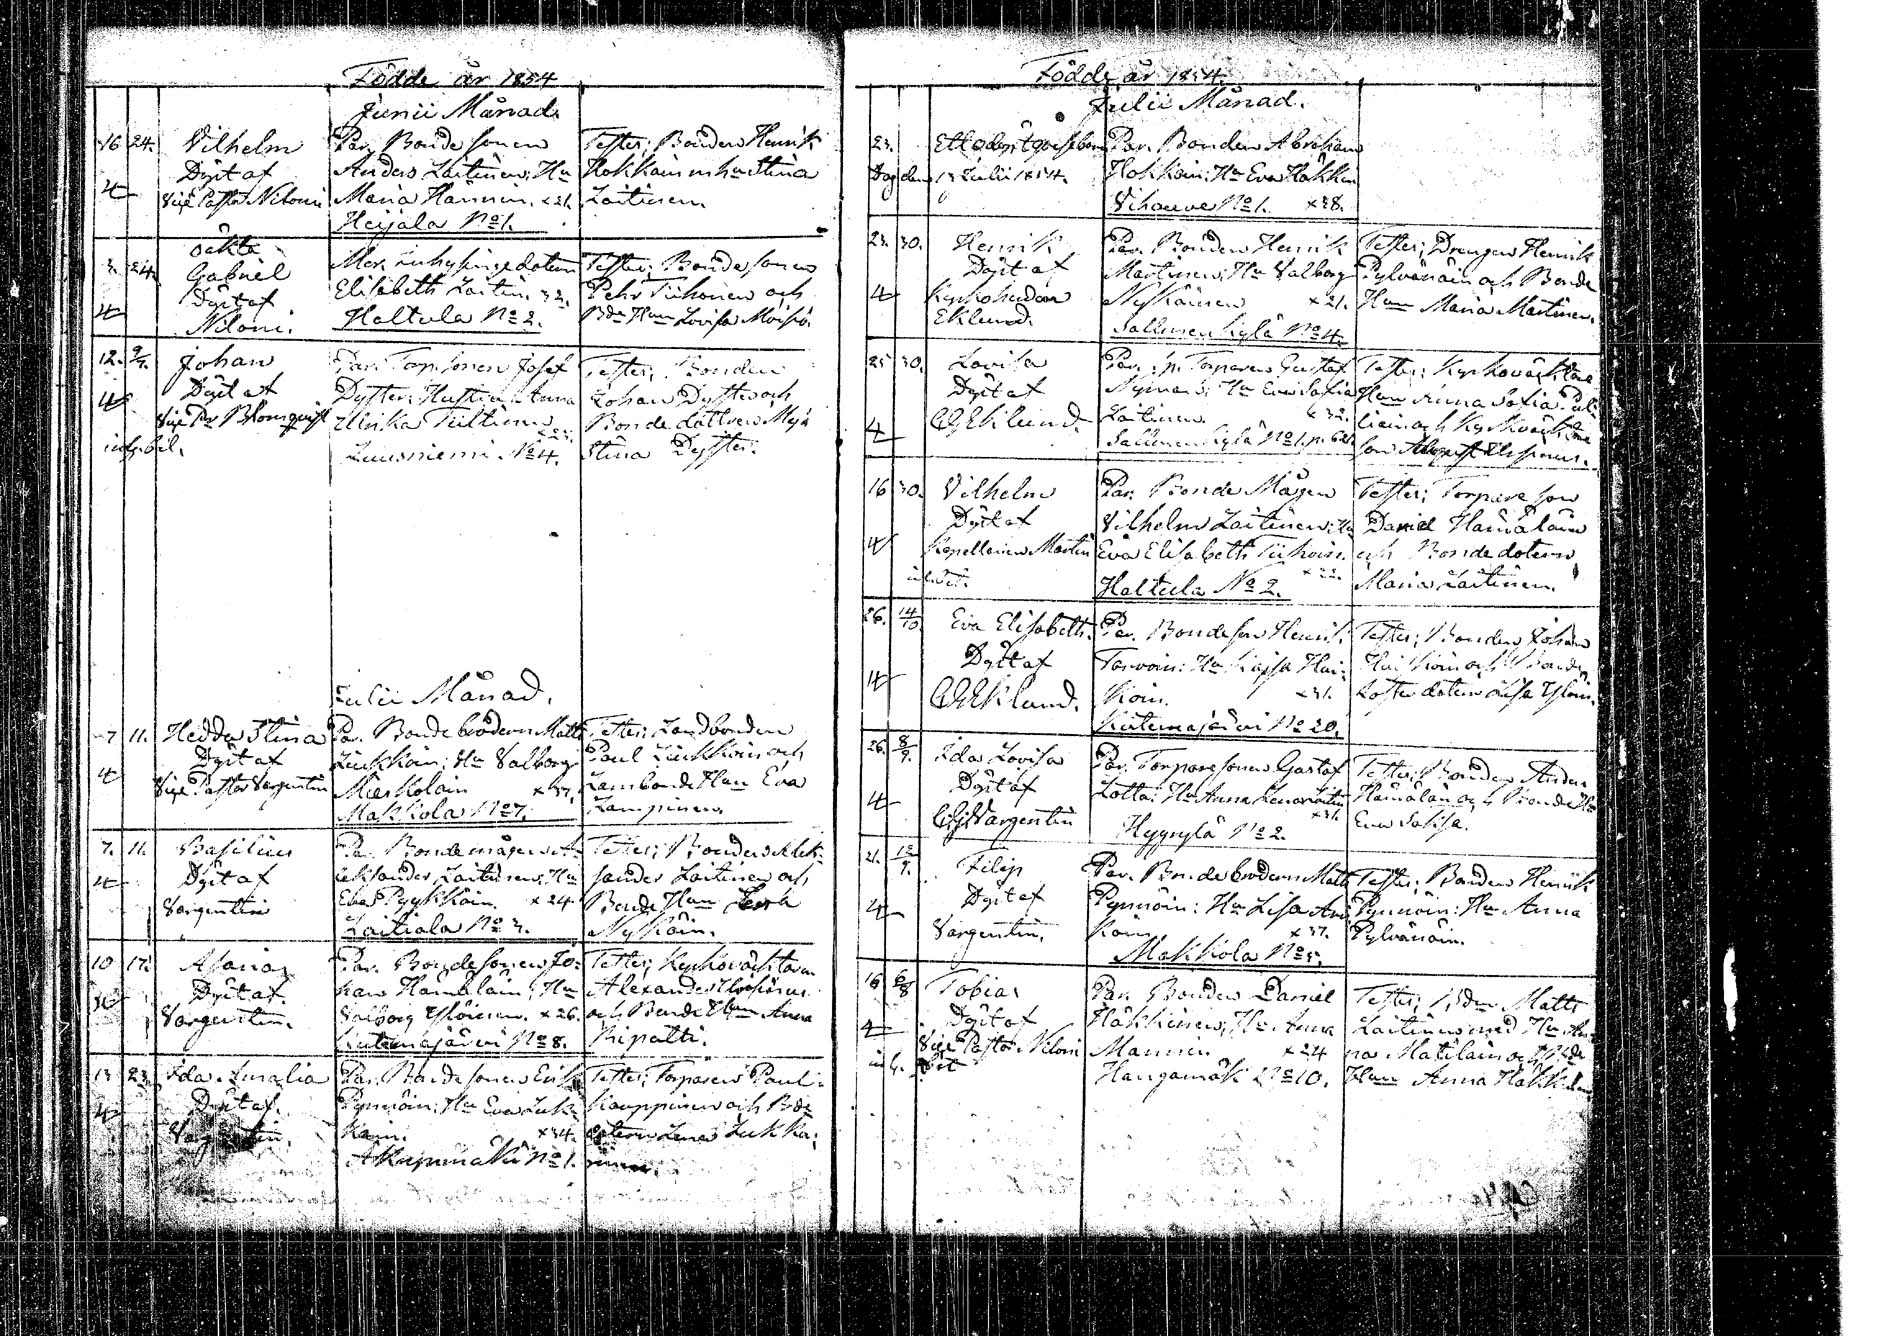 Födde år 1854
Junii Månad.
16 24. Vilhelm
Dygt af
Vice Pastor Niloni
Par. Bondesonen
Anders Laitinen; Hu
Maria Hännin. x 21.
Heijala No 1.
Tester; Bonden Henrik
Hokkain m hu Stina
Laitinen.
3. 24. oäkta
Gabriel
Dygt af
Niloni.
Mor. Inhysingedotern
Elisabeth Laitin. 32.
Haltula No 2.
Tester; Bondesonen
Pehr Tiihonen och
Bde Hun Lovisa Moisio.
12. 9/7. Johan
Dygt af
Vice Par Blomqvist
Par. Torp sonen Josef
Dyster; Hustrun Anna
Ulrika Tiitinen
x 25.
Luusniemi No 4.
Tester; Bonden
Johan Dyster och
Bonde dottren Maja
Stina Dyster.
Julii Månad.
7 11. Hedda Stina
Dygt af
Vice Pastor Vargentin
Par. Bondebrodern Matts
Liukkoin; Hu Valborg
Mieskolain x 37.
Makkola No 7.
Tester; Landbonden
Paul Liukkoin och
Lambonde Hun Eva
Lampinen.
7. 11. Basilius
Dygt af
Vargentin
Par. Bondemågen A-
leksander Laitinen; Hu
Eva Pyykköin. x 24
Laitiala No 3.
Tester; Bonden Alek-
sander Laitinen och
Bonde Hun Lena
Nykäin.
10 17. Asarias
Dygt af
Vargentin.
Par. Bondesonen Jo-
han Hämäläin; Hu
Valborg Ylöinen. x 26.
Kutemajärvi No 8.
Tester; Kyrkoväktaren
Alexander
och Bonde Hun Anna
Ripatti.
13 23. Ida Amalia
Dygt af
Vargentin.
Par. Bondesonen Erik
Pynnöin; Hu Eva Luk-
karin. x 34.
No 1.
Tester; Torparen Paul
Kauppinen och Bde
dotern Lena Lukka-
rinen.
Födde år 1854.
Julii Månad.
23. Ett odöpt gossebarn
Dog den 13 Julii 1854.
Par. Bonden Abraham
Hokkain; Hu Eva Häkkin
Vihavue No 1. x 38.
23. 30. Henrik
Dygt af
Kyrkoherden
Eklund.
Par. Bonden Henrik
Martinen; Hu Valborg
Nykäinen x 21.
Sallinenkylä No 4.
Tester; Drengen Henrik
Pylvänäin och Bonde
Hun Maria Martinen.
25 30. Lovisa
Dygt af
Eklund.
Par. Torparen Gustaf
Nyman; Hu Eva Sofia
Laitinen x 32.
Sallinenkylä No 1.
Tester; Kyrkoväktare
Hun Anna Sofia
och Kyrkoväktare
son August
16 30. Vilhelm
Dygt af
Kapellanen Martin
Par. Bonde Mågen
Vilhelm Laitinen; Hu
Eva Elisabeth Tiihoin.
x 22.
Haltula No 2.
Tester; Torpare son
Daniel Hämäläin
och Bondedotern
Maria Laitinen.
26. 14/10. Eva Elisabeth.
Dygt af
Eklund.
Par. Bondeson Henrik
Torvain; Hu Kajsa Hui-
koin. x 31.
Kutemajärvi No 20.
Tester; Bonden Johan
Huikoin och Bonde
dotern Lisa Ylöin.
26. 8/9. Ida Lovisa
Dygt af
Vargentin
Par. Torparesonen Gustaf
Lotta; Hu Anna Lena Laitin
x 31.
Hyyrylä No 2.
Tester; Bonden Anders
Hämäläin och Bonde Hu
Eva Sofia.
21. 12/9. Filip
Dygt af
Vargentin.
Par. Bondebrodern Matts
Pynnöin; Hu Lisa Avi-
koin x 37.
Makkola No 5.
Tester; Bonden Henrik
Pynnöin; Hu Anna
Pylvänäin.
16 6/8 Tobias
Dygt af
Vice Pastor Niloni
Par. Bonden Daniel
Häkkinen; Hu Anna
Mannin x 24
Hangamäki No 10.
Tester; Bden Matts
Laitinen med Hu An-
na Matilain och Bde
Hun Anna Häkkinen